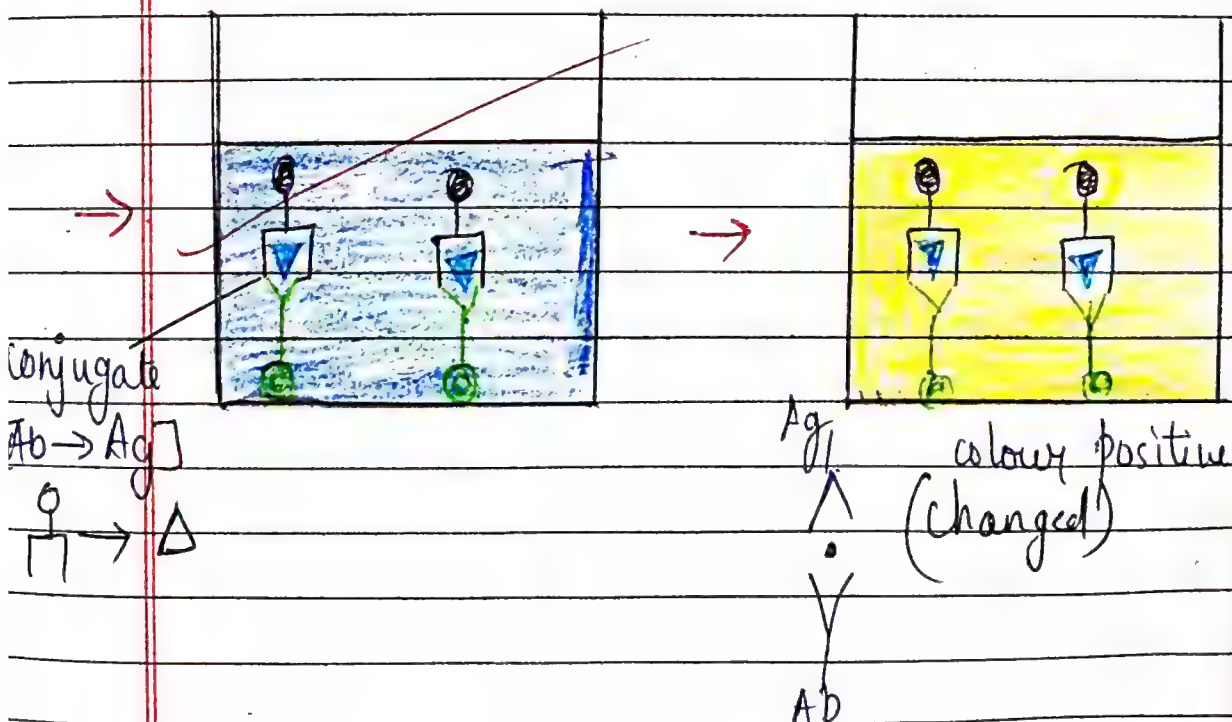 Conjugate
Ab → Ag
Ag
colour positive
(changed)
Ab